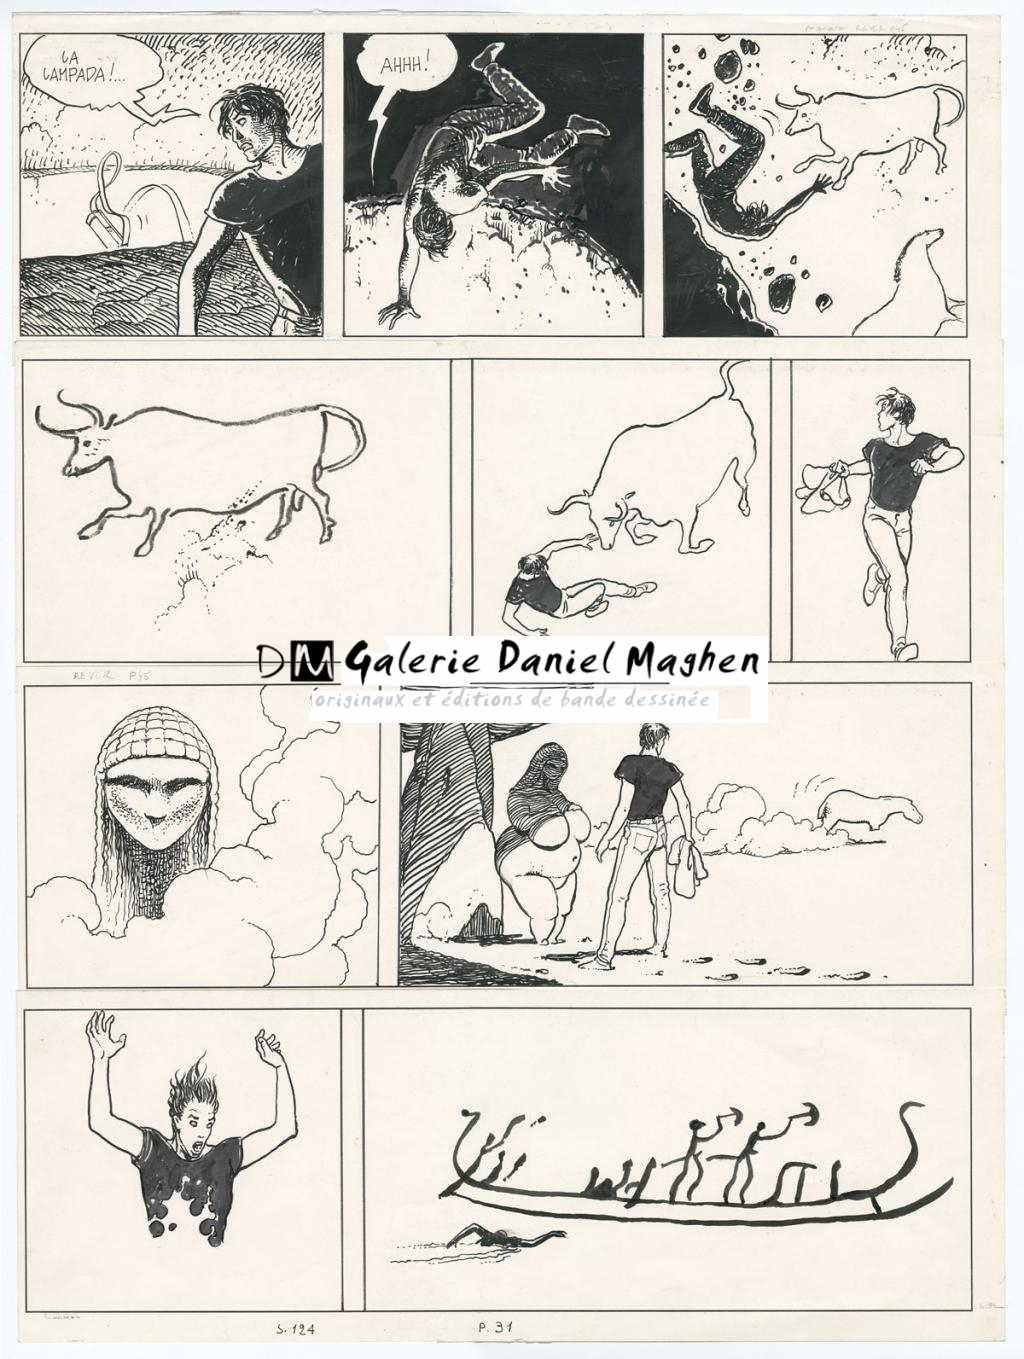 LA
LAMPADA!...
AHHH!
DM Galerie Daniel Maghen
originaux et éditions de bande dessinée
REVER P45
S.124
P.31